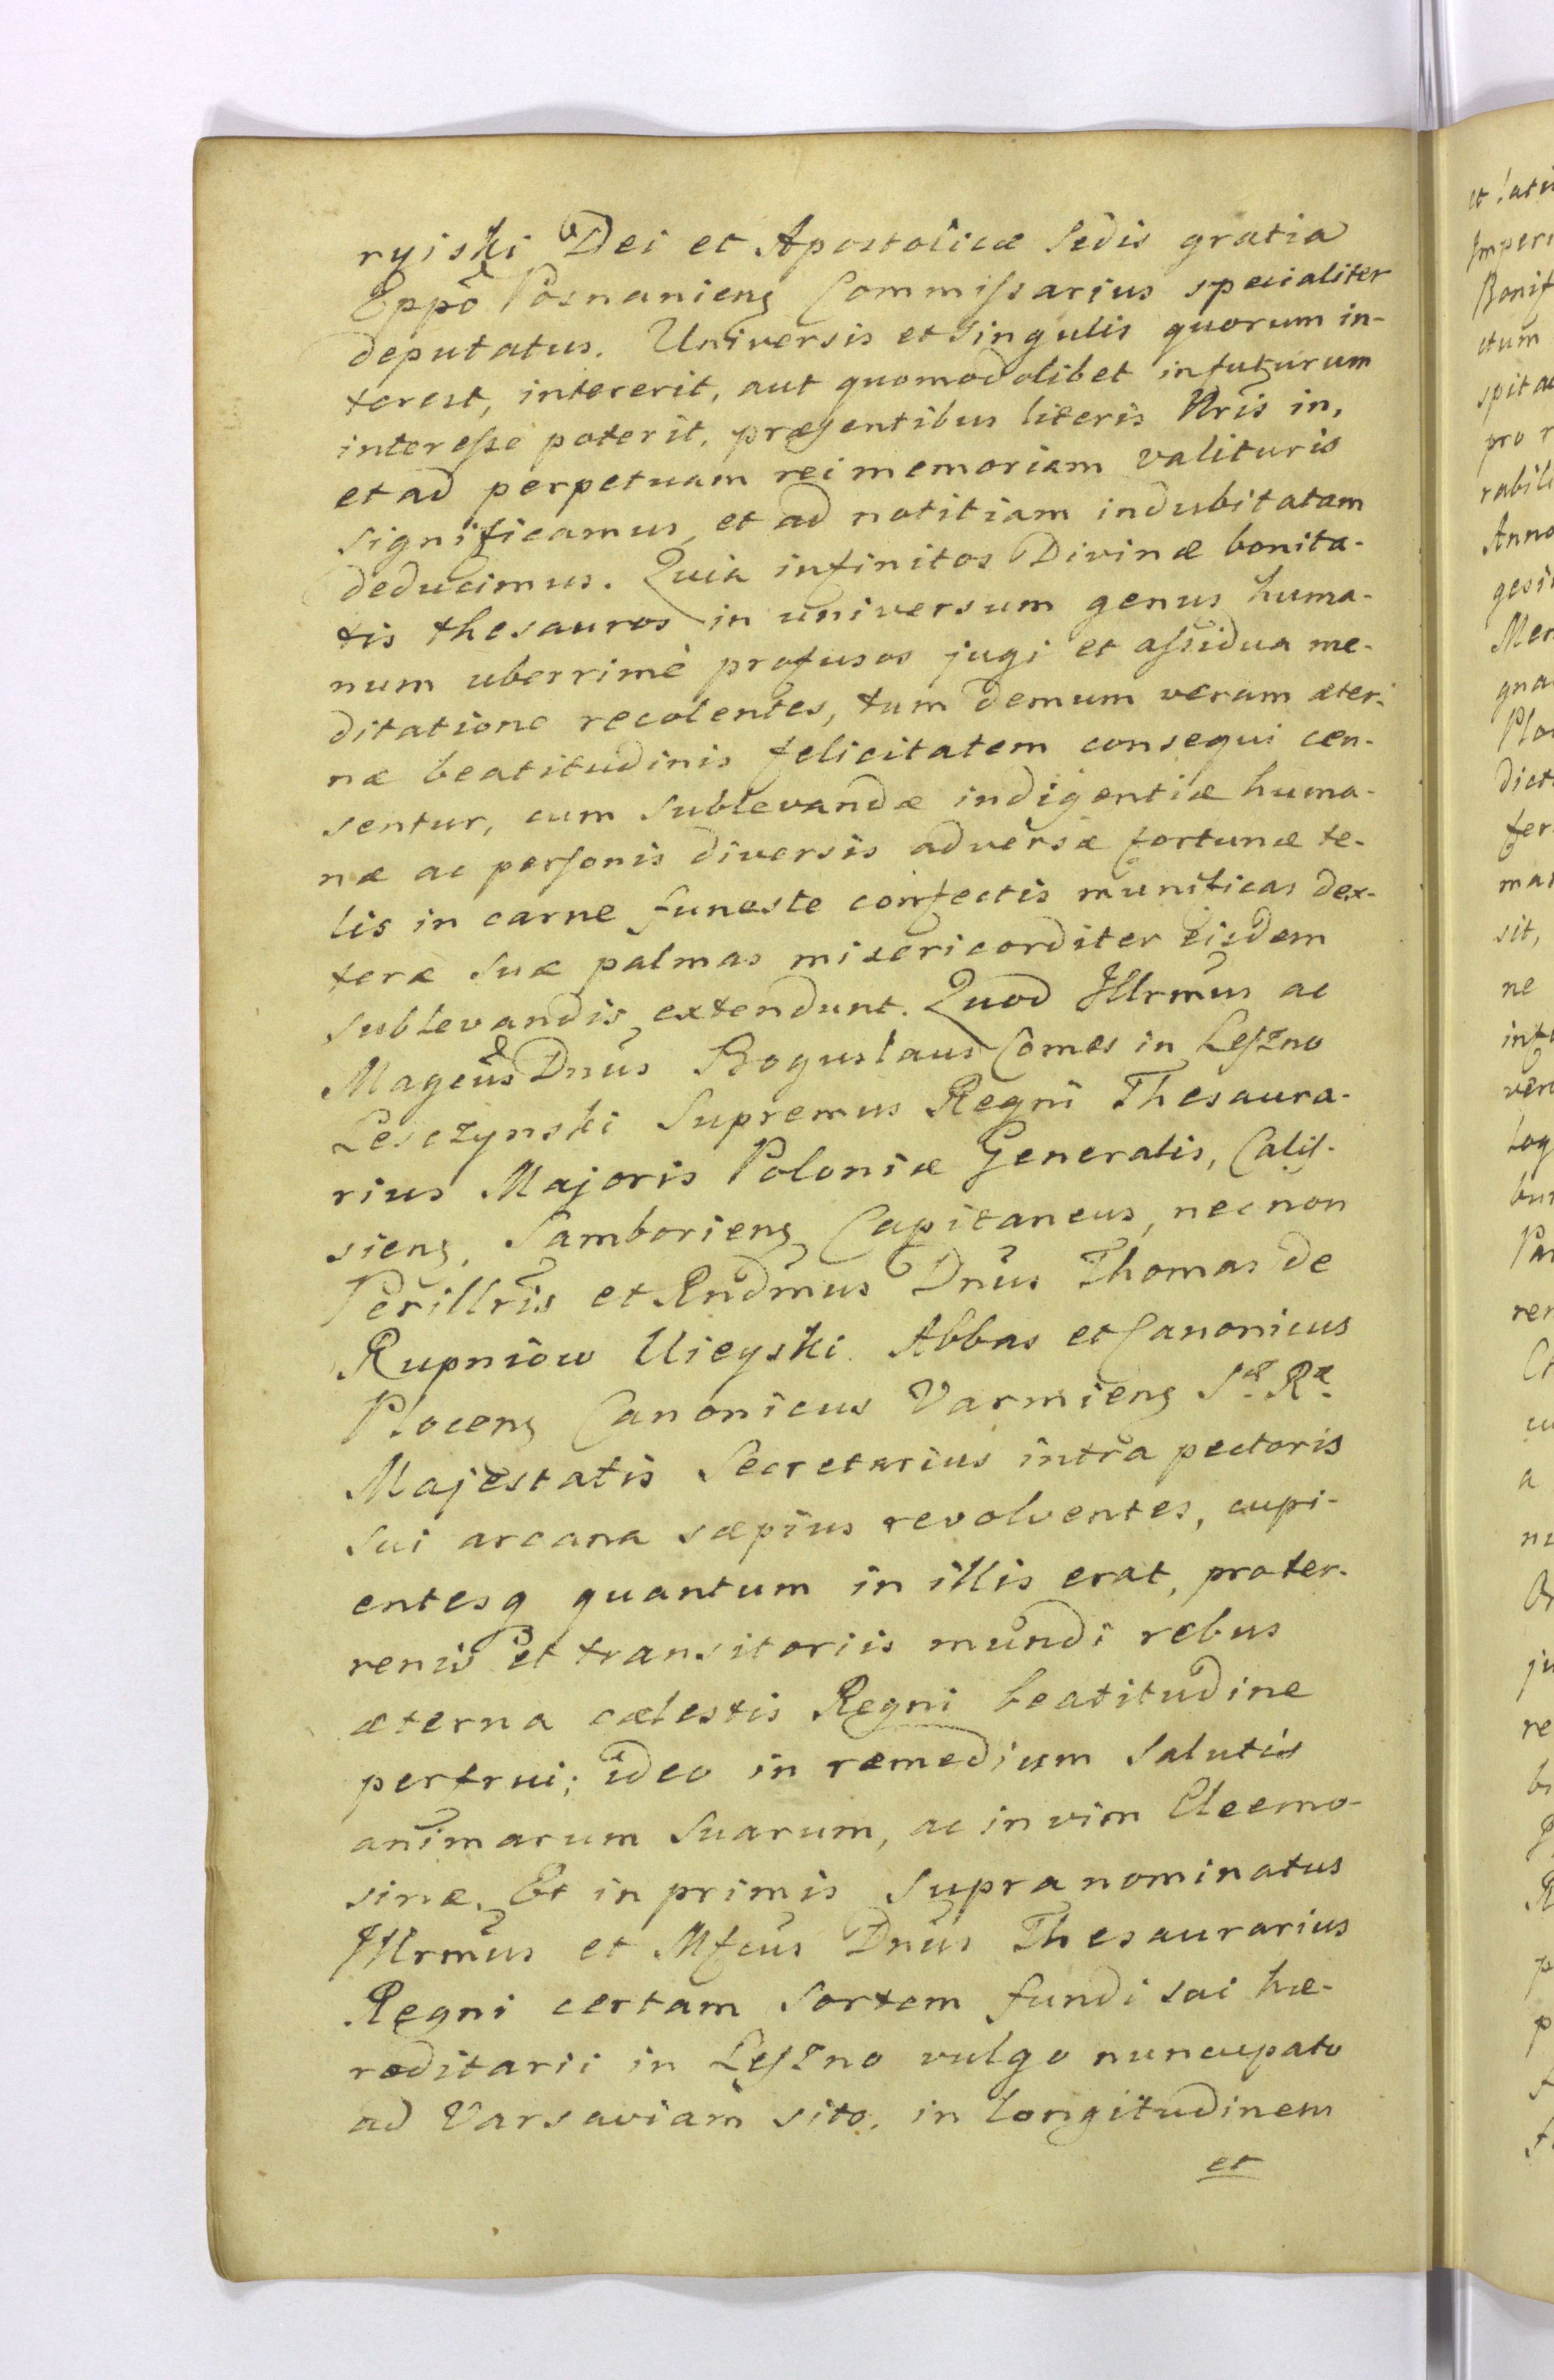 ryiski Dei et Apostolicæ Sedis gratia
Eppõ Posnaniens Commissarius specialiter
deputatus. Universis et singulis quorum in-
terest, intererit, aut quomodolibet in futurum
interesse poterit, præsentibus literis Nris in,
et ad perpetuam rei memoriam valituris
significamus, et ad notitiam indubitatam
deducimus. Quia infinitos Divinæ bonita-
tis thesauros in universum genus huma-
num uberrimè profusos jugi et assidua me-
ditatione recolentes, tum demum veram æter-
næ beatitudinis felicitatem consequi cen-
sentur, cum sublevandæ indigentiæ huma-
næ ac personis diversis adversæ fortunæ te-
lis in carne funeste confectis munificas dex-
teræ suæ palmas misericorditer eisdem
sublevandis extendunt. Quod Illrmus ac
Magcus Dnus Boguslaus Comes in Leszno
Lesczynski Supremus Regni Thesaura-
rius Majoris Poloniæ Generalis, Calis-
siens, Samboriens Capitaneus, nec non
Perillris et Rndmus Dnus Thomas de
Rupniow Uieyski Abbas et Canonicus
Plocens Canonicus Varmiens Sæ Ræ
Majestatis Secretarius intra pectoris
sui arcana sæpius revolventes, cupi-
entesq quantum in illis erat, pro ter-
renis et transitoriis mundi rebus
æterna cælestis Regni beatitudine
perfrui; ideo in remedium salutis
animarum suarum, ac in vim Eleemo-
sinæ. Et in primis supra nominatus
Illrmus et Mfcus Dnus Thesaurarius
Regni certam sortem fundi sui hæ-
reditarii in Leszno vulgo nuncupato
ad Varsaviam sito, in longitudinem
et